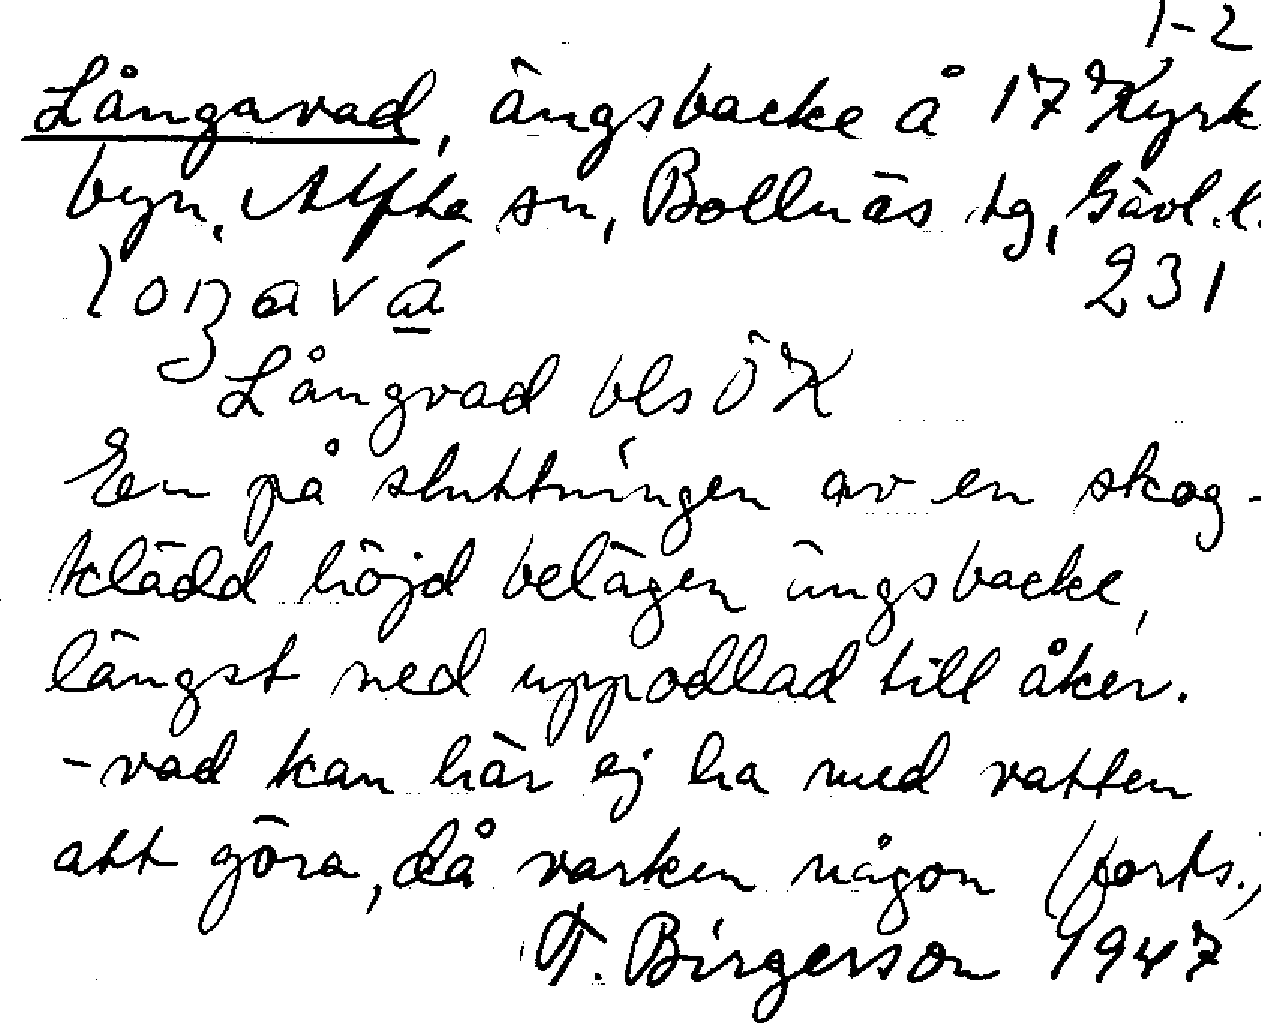 1-2
Långavad, ängsbacke å 17 Kyrk
byn, Alfta sn, Bollnäs tg, Gävl. l.
loŋavá
231
Långvad bls ÖK
En på sluttningen av en skog-
klädd höjd belägen ängsbacke,
längst ned uppodlad till åker.
-vad kan här ej ha med vatten
att göra, då varken någon (forts.)
T. Birgerson 1947